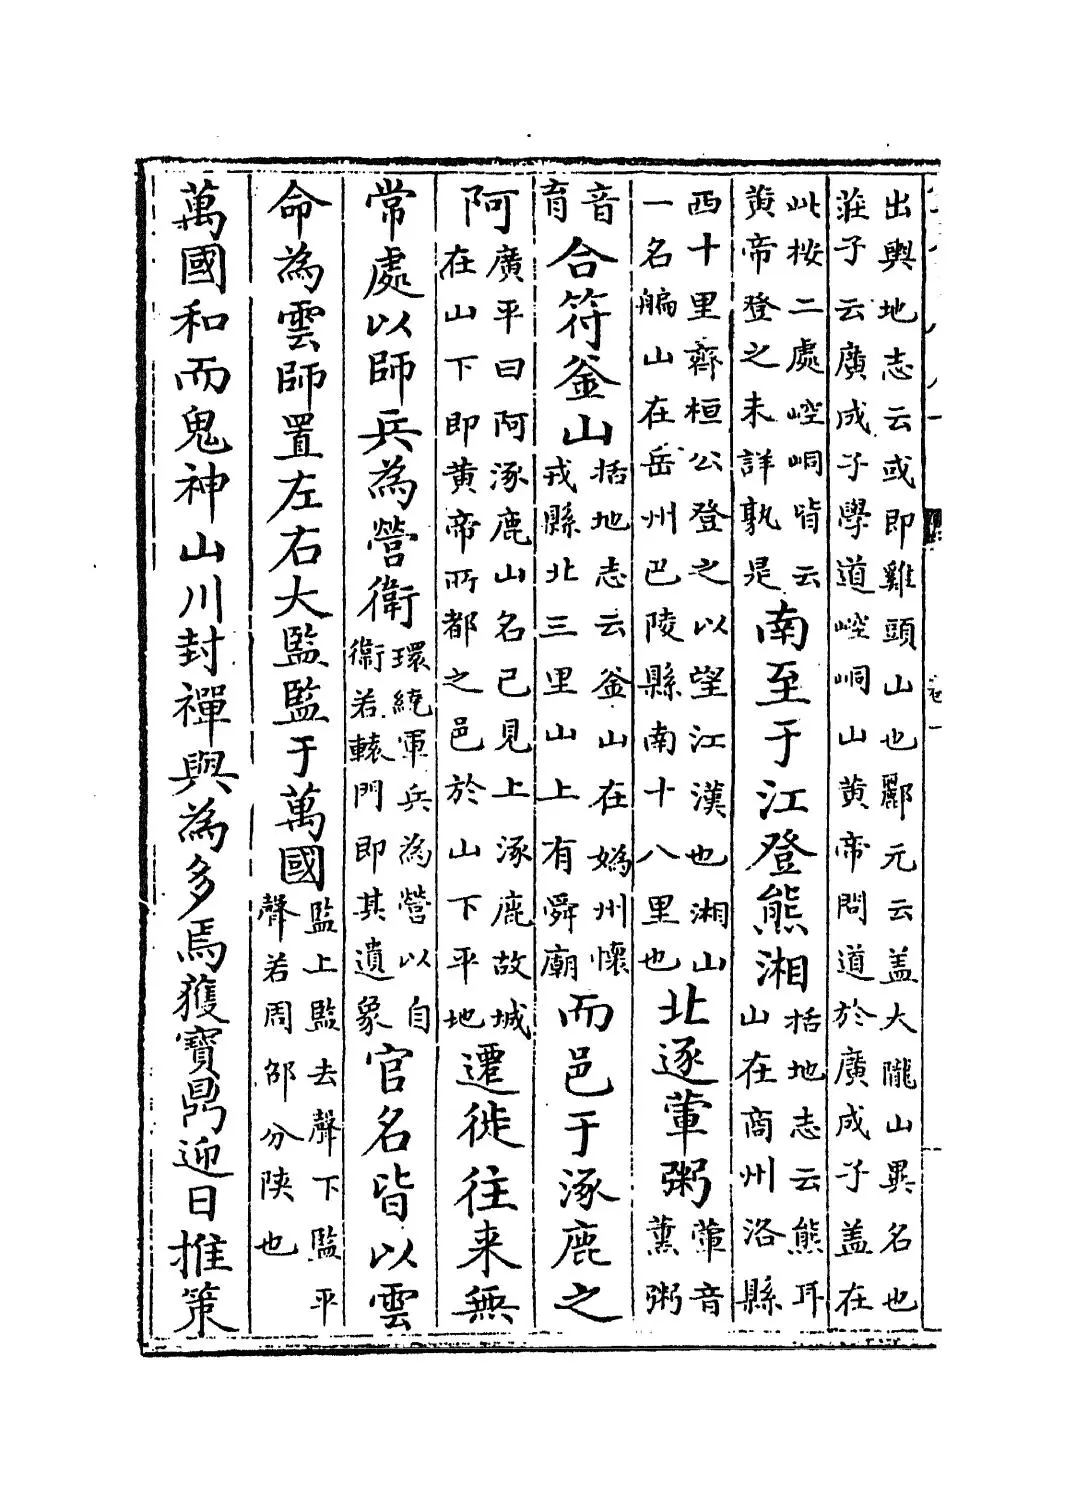 出輿地志云或即雞頭山也酈元云盖大隴山異名也
莊子云廣成子學道崆峒山黄帝問道於廣成子盖在
此桉二處崆峒皆云
黄帝登之未詳孰是
南至于江登熊湘
括地志云熊耳
山在商州洛縣
西十里齊桓公登之以望江漢也湘山
一名艑山在岳州巴陵縣南十八里也
北逐葷粥
葷音
薰粥
音
育
合符釜山
括地志云釜山在媯州懷
戎縣北三里山上有舜廟
而邑于涿鹿之
阿
廣平曰阿涿鹿山名已見上涿鹿故城
在山下即黄帝所都之邑於山下平地
遷徙往来無
常處以師兵為營衛
環繞軍兵為營以自
衛若轅門即其遺象
官名皆以雲
命為雲師置左右大監監于萬國
監上監去聲下監平
聲若周邵分陝也
萬國和而鬼神山川封禪與為多焉獲寶鼎迎日推策